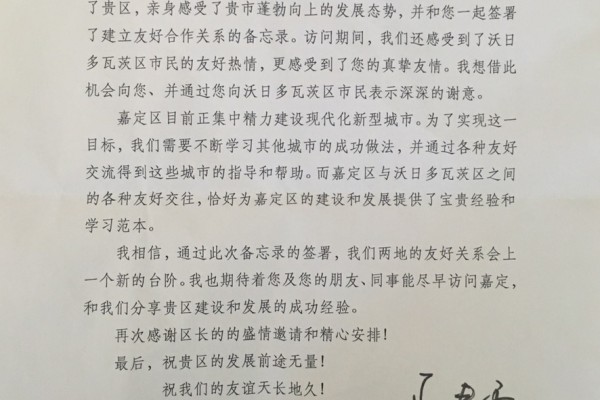 了贵区，亲身感受了贵市蓬勃向上的发展态势，并和您一起签署
了建立友好合作关系的备忘录。访问期间，我们还感受到了沃日
多瓦茨区市民的友好热情，更感受到了您的真挚友情。我想借此
机会向您、并通过您向沃日多瓦茨区市民表示深深的谢意。
嘉定区目前正集中精力建设现代化新型城市。为了实现这一
目标，我们需要不断学习其他城市的成功做法，并通过各种友好
交流得到这些城市的指导和帮助。而嘉定区与沃日多瓦茨区之间
的各种友好交往，恰好为嘉定区的建设和发展提供了宝贵经验和
学习范本。
我相信，通过此次备忘录的签署，我们两地的友好关系会上
一个新的台阶。我也期待着您及您的朋友、同事能尽早访问嘉定，
和我们分享贵区建设和发展的成功经验。
再次感谢区长的的盛情邀请和精心安排！
最后，祝贵区的发展前途无量！
祝我们的友谊天长地久！